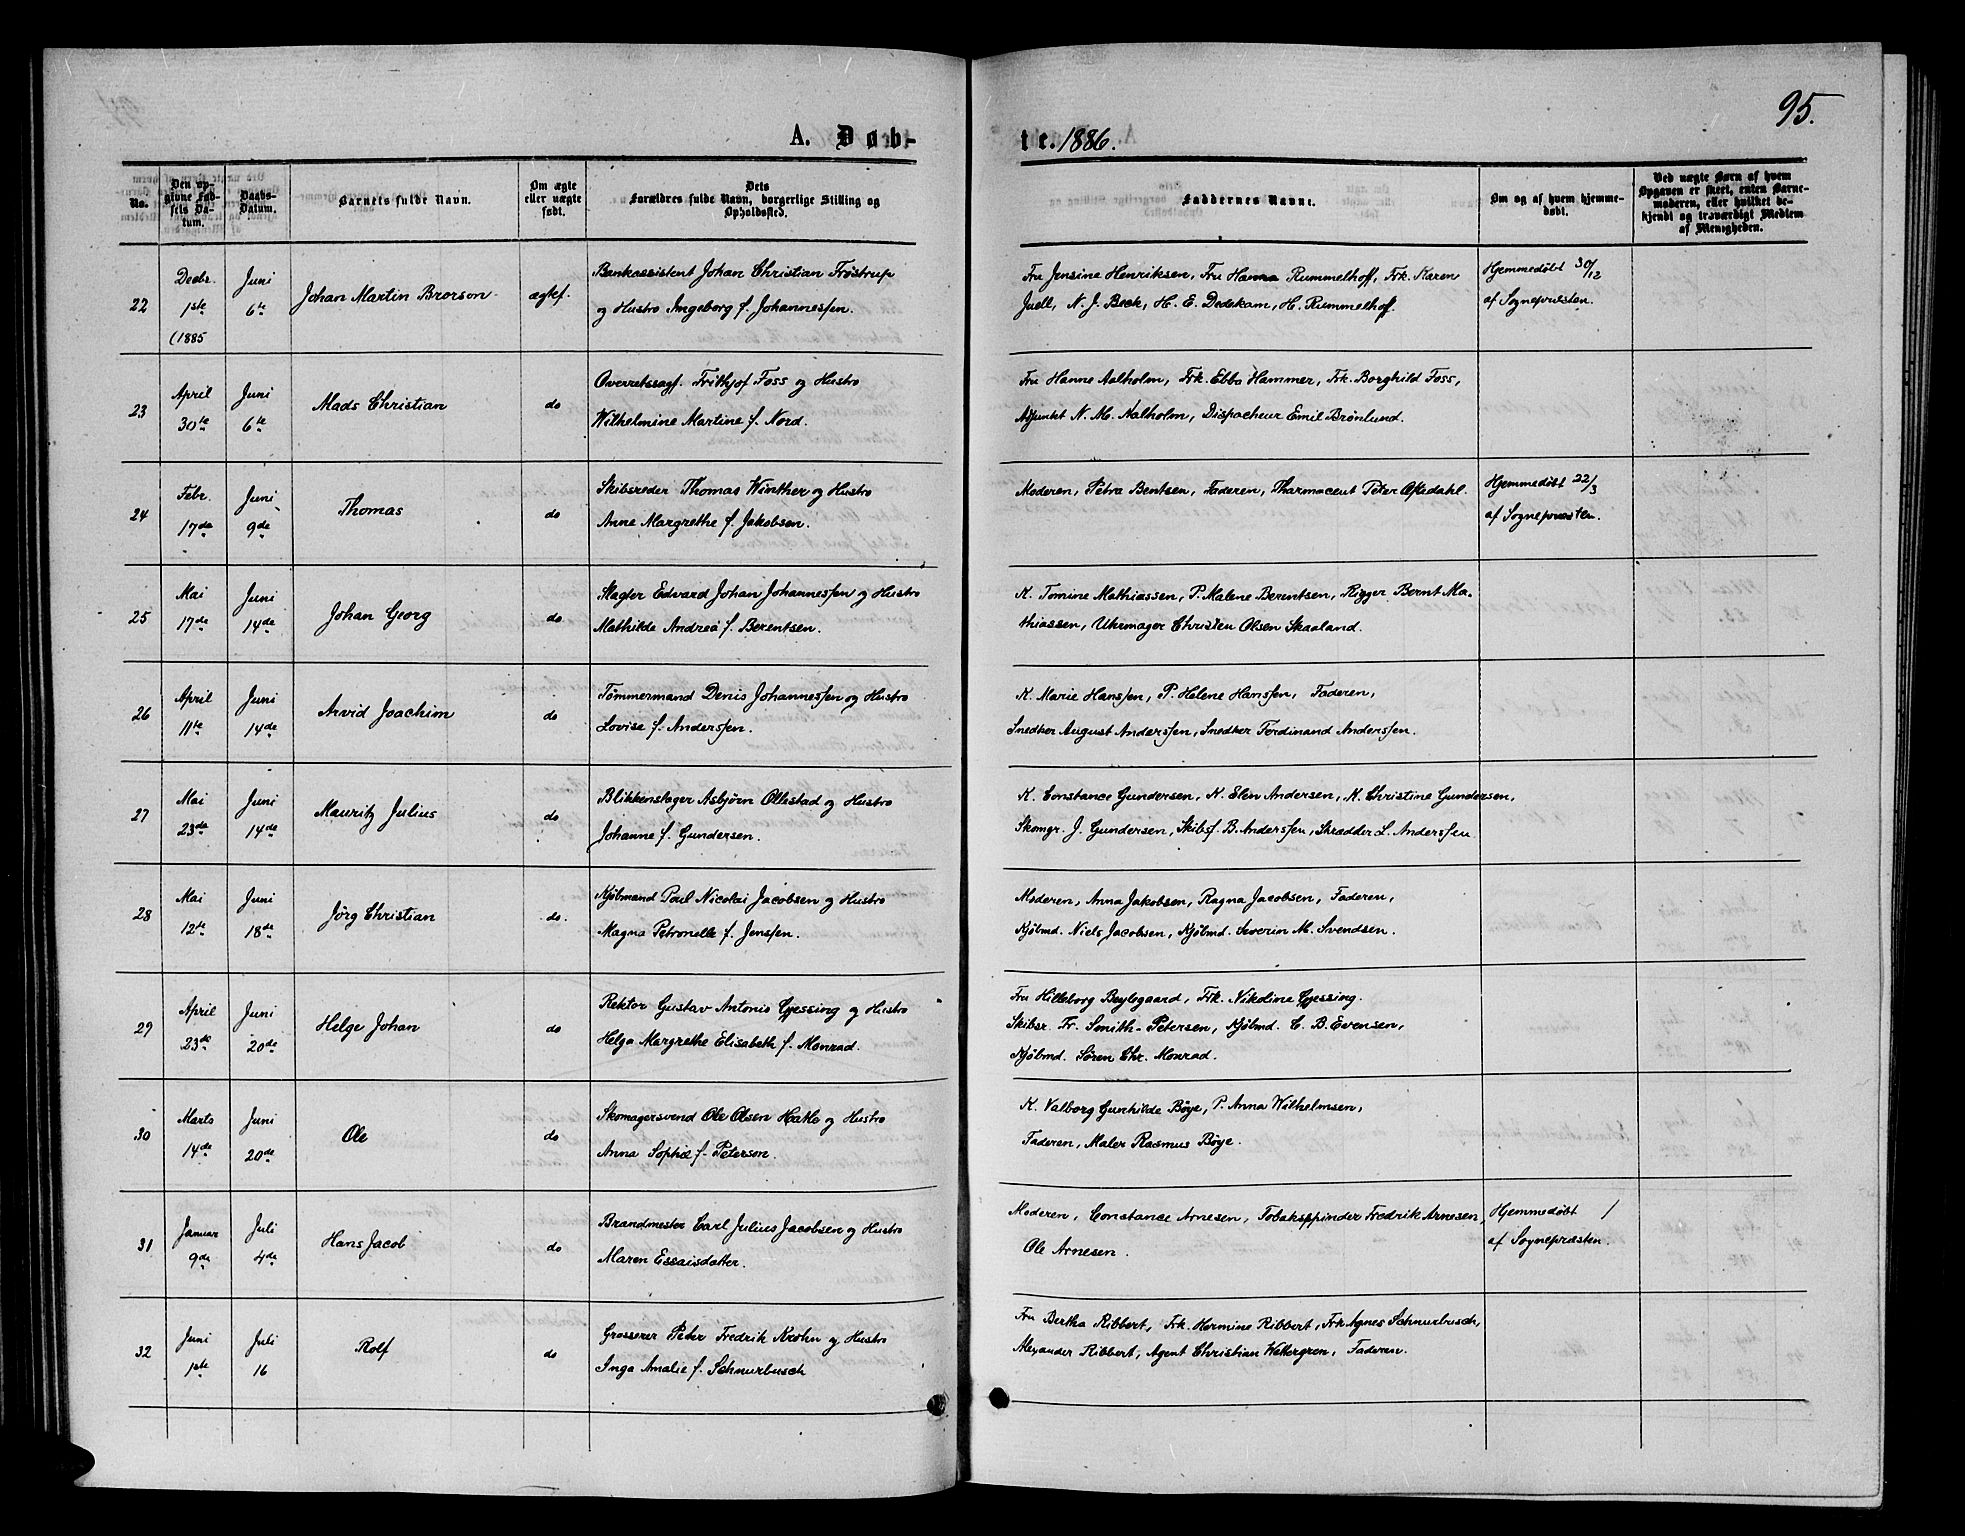 95.
A. Døb-
te. 1886.
No.
Den op-
givne Fød-
sels Da-
tum.
Daabs-
Datum.
Barnets fulde Navn.
Om ægte
eller uægte
født.
Dets
Forældres fulde Navn, borgerlige Stilling og
Opholdssted.
Faddernes Navne.
Om og af hvem hjemme-
døbt.
Ved uægte Børn af hvem
Opgaven er skeet, enten Barne-
moderen, eller hvilket be-
kjendt og troværdigt Medlem
af Menigheden.
22
Decbr.
1ste
(1885
Juni
6te
Johan Martin Brorson
ægtef.
Bankassistent Johan Christian Frøstrup
og Hustro Ingeborg f. Johannessen.
Fru Jensine Henriksen, Fru Hanna Rummelhoff, Frk. Karen
Juell, N. J. Beck, H. E. Dedekam, H. Rummelhoff.
Hjemmedøbt 30/12
af Sognepræsten.
23
April
30te
Juni
6te
Mads Christian
do
Overretssagf. Frithjof Foss og Hustro
Wilhelmine Martine f. Nord.
Fru Hanne Aalholm, Frk. Ebba Hammer, Frk. Borghild Foss,
Adjunkt N. M. Aalholm, Dispacheur Emil Brønlund.
24
Febr.
17de
Juni
9de
Thomas
do
Skibsreder Thomas Winther og Hustro
Anne Margrethe f. Jakobsen.
Moderen, Petra Bentsen, Faderen, Pharmaceut Peter
Hjemmedøbt 22/3
af Sognepræsten.
25
Mai
17de
Juni
14de
Johan Georg
do
Slagter Edvard Johan Johannessen og Hustro
Mathilde Andrea f. Berentsen.
K. Tomine Mathiassen, P. Malene Berentsen, Rigger Bernt Ma-
thiassen, Uhrmager Christen Olsen Skaaland.
26
April
11te
Juni
14de
Arvid Joachim
do
Tømmermand Denis Johannessen og Hustro
Lovise f. Anderssen.
K. Marie Hanssen, P. Helene Hanssen, Faderen,
Snedker August Anderssen, Snedker Ferdinand Anderssen.
27
Mai
23de
Juni
14de
Mauritz Julius
do
Blikkenslager Asbjørn Ollestad og Hustro
Johanne f. Gundersen.
K. Constance Gundersen, K. Elen Andersen, K. Christine Gundersen,
Skomgr. J. Gundersen, Skibsf. B. Anderssen, Skrædder L. Anderssen
28
Mai
12te
Juni
18de
Jørg Christian
do.
Kjøbmand Poul Nicolai Jacobsen og Hustro
Magna Petronelle f. Jenssen.
Moderen, Anna Jakobsen, Ragna Jacobsen, Faderen,
Kjøbmd. Niels Jacobsen, Kjøbmd. Severin M. Svendsen.
29
April
23de
Juni
20de
Helge Johan
do
Rektor Gustav Antonio Gjessing og Hustro
Helga Margrethe Elisabeth f. Monrad.
Fru Hilleborg Beylegaard, Frk. Nikoline Gjessing.
Skibsr. Fr. Smith-Petersen, Kjøbmd. C. B. Evensen,
Kjøbmd. Søren Chr. Monrad.
30
Marts
14de
Juni
20de
Ole
do
Skomagersvend Ole Olsen og Hustro
Anna Sophie f. Peterson.
K. Valborg Gunhilde Bøye, P. Anna Wilhelmsen,
Faderen, Maler Rasmus Bøye.
31
Januar
9de
Juli
4de
Hans Jacob
do
Brandmester Carl Julius Jacobsen og Hustro
Maren Essaisdatter.
Moderen, Constance Arnesen, Tobakspinder Fredrik Arnesen,
Ole Arnesen.
Hjemmedøbt /
af Sognepræsten.
32
Juni
1ste
Juli
16
Rolf
do
Grosserer Peter Fredrik Krohn og Hustro
Inga Amalie f. Schnurbusch
Fru Bertha Ribbert, Frk. Hermine Ribbert, Frk Agnes Schnurbusch,
Alexander Ribbert, Agent Christian Wettergren, Faderen.